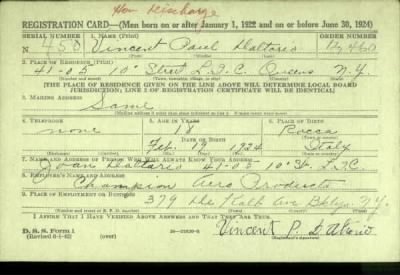 Hon Discharge
REGISTRATION CARD—(Men born on or after January 1, 1922 and on or before June 30, 1924)
SERIAL NUMBER 1. NAME (Print) ORDER NUMBER
N 458 Vincent Paul Dattario 12,460
2. PLACE OF RESIDENCE (Print)
41-05 10th Street L.I.C. Queens N.Y.
(Number and street) (Town, township, village, or city) (County) (State)
[THE PLACE OF RESIDENCE GIVEN ON THE LINE ABOVE WILL DETERMINE LOCAL BOARD
JURISDICTION; LINE 2 OF REGISTRATION CERTIFICATE WILL BE IDENTICAL]
3. MAILING ADDRESS
Same
4. TELEPHONE 5. AGE IN YEARS 6. PLACE OF BIRTH
none 18 Rocca
DATE OF BIRTH
Feb. 19 1924 Italy
(Mo.) (Day) (Yr.)
7. NAME AND ADDRESS OF PERSON WHO WILL ALWAYS KNOW YOUR ADDRESS
Dattario 41-05 10th St. L.I.C.
8. EMPLOYER'S NAME AND ADDRESS
Champion Aero Products
9. PLACE OF EMPLOYMENT OR BUSINESS
379 De Kalb Ave Bklyn. N.Y.
(Number and street or R. F. D. number) (Town) (County) (State)
I AFFIRM THAT I HAVE VERIFIED ABOVE ANSWERS AND THAT THEY ARE TRUE.
D. S. S. Form 1
(Revised 6-1-42) (over) Vincent P. Dattario